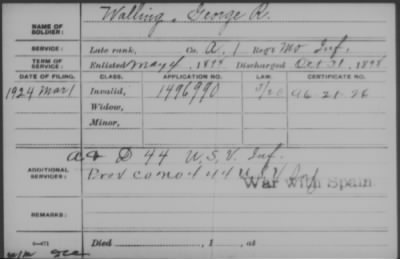 NAME OF SOLDIER: Walling, George R.
SERVICE: Late rank, Co. A, 1 Reg't Mo Inf.
TERM OF SERVICE: Enlisted May 4, 1898 Discharged Oct 31, 1898
DATE OF FILING. CLASS. APPLICATION NO. LAW. CERTIFICATE NO.
1924 Mar 1 Invalid, 1496990
Widow,
Minor,
ADDITIONAL SERVICES: A & D 44 U.S.V. Inf.
War with Spain
REMARKS:
Died , 1 , at